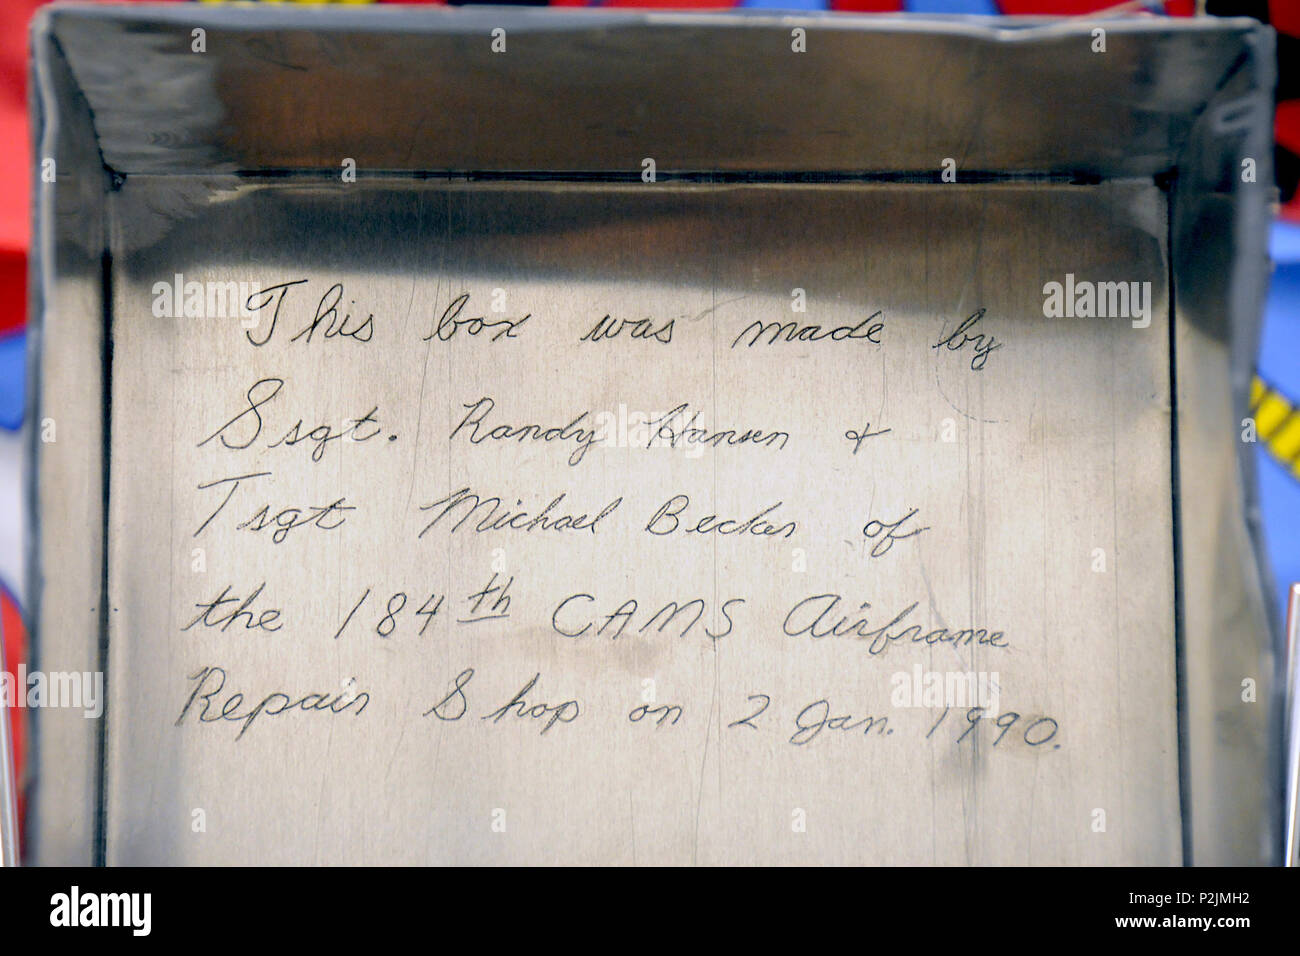 This box was made by
Ssgt. Randy Hansen &
Tsgt Michael Becker of
the 184th CAMS Airframe
Repair Shop on 2 Jan. 1990.
alamy
alamy
Image ID: P2JMH2
www.alamy.com